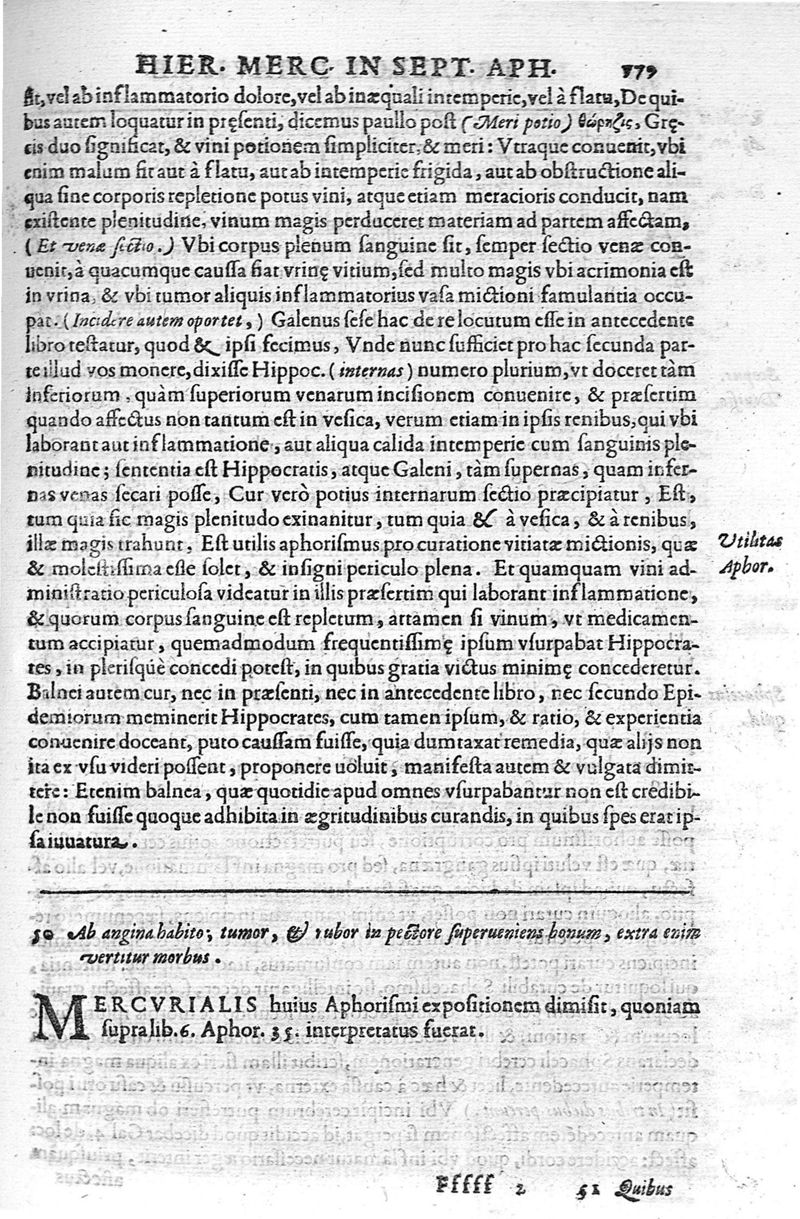 HIER. MERC. IN SEPT. APH. 779
sit, vel ab inflammatorio dolore, vel ab inæquali intemperie, vel à flatu, De qui-
bus autem loquatur in pręsenti, dicemus paullo post (Meri potio) θώρηξις, Grę-
cis duo significat, & vini potionem simpliciter, & meri: Vtraque conuenit, vbi
enim malum fit aut à flatu, aut ab intemperie frigida, aut ab obstructione ali-
qua sine corporis repletione potus vini, atque etiam meracioris conducit, nam
existente plenitudine, vinum magis perduceret materiam ad partem affectam,
(Et venæ sectio.) Vbi corpus plenum sanguine sit, semper sectio venæ con-
uenit, à quacumque caussa fiat vrinę vitium, sed multo magis vbi acrimonia est
in vrina, & vbi tumor aliquis inflammatorius vasa mictioni famulantia occu-
pat. (Incidere autem oportet,) Galenus sese hac de re locutum esse in antecedente
libro testatur, quod & ipsi fecimus, Vnde nunc sufficiet pro hac secunda par-
te illud vos monere, dixisse Hippoc. (internas) numero plurium, vt doceret tàm
inferiorum, quàm superiorum venarum incisionem conuenire, & præsertim
quando affectus non tantum est in vesica, verum etiam in ipsis renibus, qui vbi
laborant aut inflammatione, aut aliqua calida intemperie cum sanguinis ple-
nitudine; sententia est Hippocratis, atque Galeni, tàm supernas, quam infer-
nas venas secari posse, Cur verò potius internarum sectio præcipiatur, Est,
tum quia sic magis plenitudo exinanitur, tum quia & à vesica, & à renibus,
illæ magis trahunt. Est utilis aphorismus pro curatione vitiatæ mictionis, quæ
& molestissima esse solet, & insigni periculo plena. Et quamquam vini ad-
ministratio periculosa videatur in illis præsertim qui laborant inflammatione,
& quorum corpus sanguine est repletum, attamen si vinum, vt medicamen-
tum accipiatur, quemadmodum frequentissimę ipsum vsurpabat Hippocra-
tes, in plerisquè concedi potest, in quibus gratia victus minimę concederetur.
Balnei autem cur, nec in præsenti, nec in antecedente libro, nec secundo Epi-
demiorum meminerit Hippocrates, cum tamen ipsum, & ratio, & experientia
conuenire doceant, puto caussam fuisse, quia dumtaxat remedia, quæ alijs non
ita ex vsu videri possent, proponere uoluit, manifesta autem & vulgata dimit-
tere: Etenim balnea, quæ quotidie apud omnes vsurpabantur non est credibi-
le non fuisse quoque adhibita in ægritudinibus curandis, in quibus spes erat ip-
sa iuuatura.
Vtilitas
Aphor.
50 Ab angina habito, tumor, & rubor in pectore superueniens bonum, extra enim
vertitur morbus.
MERCVRIALIS huius Aphorismi expositionem dimisit, quoniam
supra lib. 6. Aphor. 35. interpretatus fuerat.
Fffff 2 51 Quibus